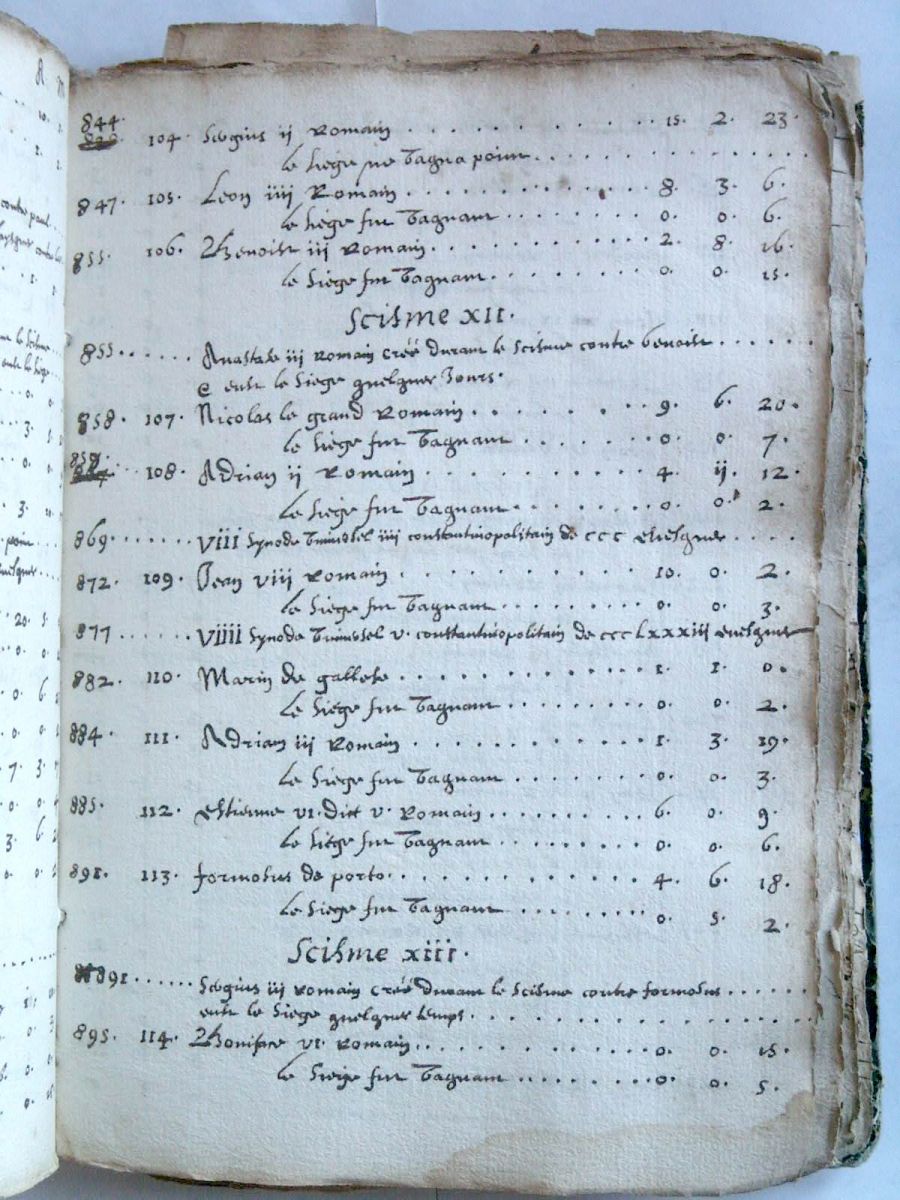 844.
104. Sergius ij Romain . . . . . . . . . . 15. 2. 23
le siege ne vaqua point . . . . . . . . . .
847. 105. Leon iiij Romain . . . . . . . . . 8. 3. 6.
le siege fut vaquant . . . . . . . 0. 0. 6.
855. 106. Benoist iij Romain . . . . . . . . 2. 8. 16.
le siege fut vaquant . . . . . . . 0. 0. 15.
Scisme XII.
855 . . . . . . Anastase iij Romain créé durant le scisme contre benoist . . . . . .
e eust le siege quelques Jours.
858. 107. Nicolas le grand Romain . . . . . . . 9. 6. 20.
le siege fut vaquant . . . . . . 0. 0. 7.
108. Adrian ij Romain . . . . . . . . . 4. ij. 12.
le siege fut vaquant . . . . . . 0. 0. 2.
869 . . . . . . VIII synode Universel iiij constantinopolitain de ccc evesques . . . .
872. 109. Jean viij Romain . . . . . . . . . 10. 0. 2.
le siege fut vaquant . . . . . . . 0. 0. 3.
877 . . . . . . VIIII synode Universel v. constantinopolitain de cccLxxxiii evesques
882. 110. Marin de gallese . . . . . . . . . . 1. 1. 0.
le siege fut vaquant . . . . . . . 0. 0. 2.
884. 111. Adrian iij Romain . . . . . . . . . 1. 3. 19.
le siege fut vaquant . . . . . . . 0. 0. 3.
885. 112. estienne vi. dict v. Romain . . . . . . . 6. 0. 9.
le siege fut vaquant . . . . . . . 0. 0. 6.
891. 113. formosus de porto . . . . . . . . . . 4. 6. 18.
le siege fut vaquant . . . . . . . 0. 5. 2.
Scisme xiii.
891 . . . . . . Sergius iij Romain créé durant le scisme contre formosus . . . . . .
eust le siege quelques temps . . . . . . . . . .
895. 114. Boniface vi. Romain . . . . . . . . 0. 0. 15.
le sieige fut vaquant . . . . . . . 0. 0. 5.